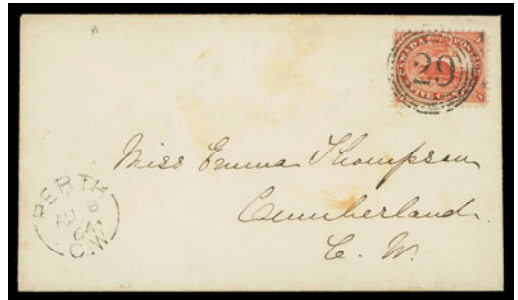 CANADA POSTAGE
29
FIVE CENTS
Miss Emma Thompson
Cumberland.
C. W.
PERTH
AU 8
64
C.W